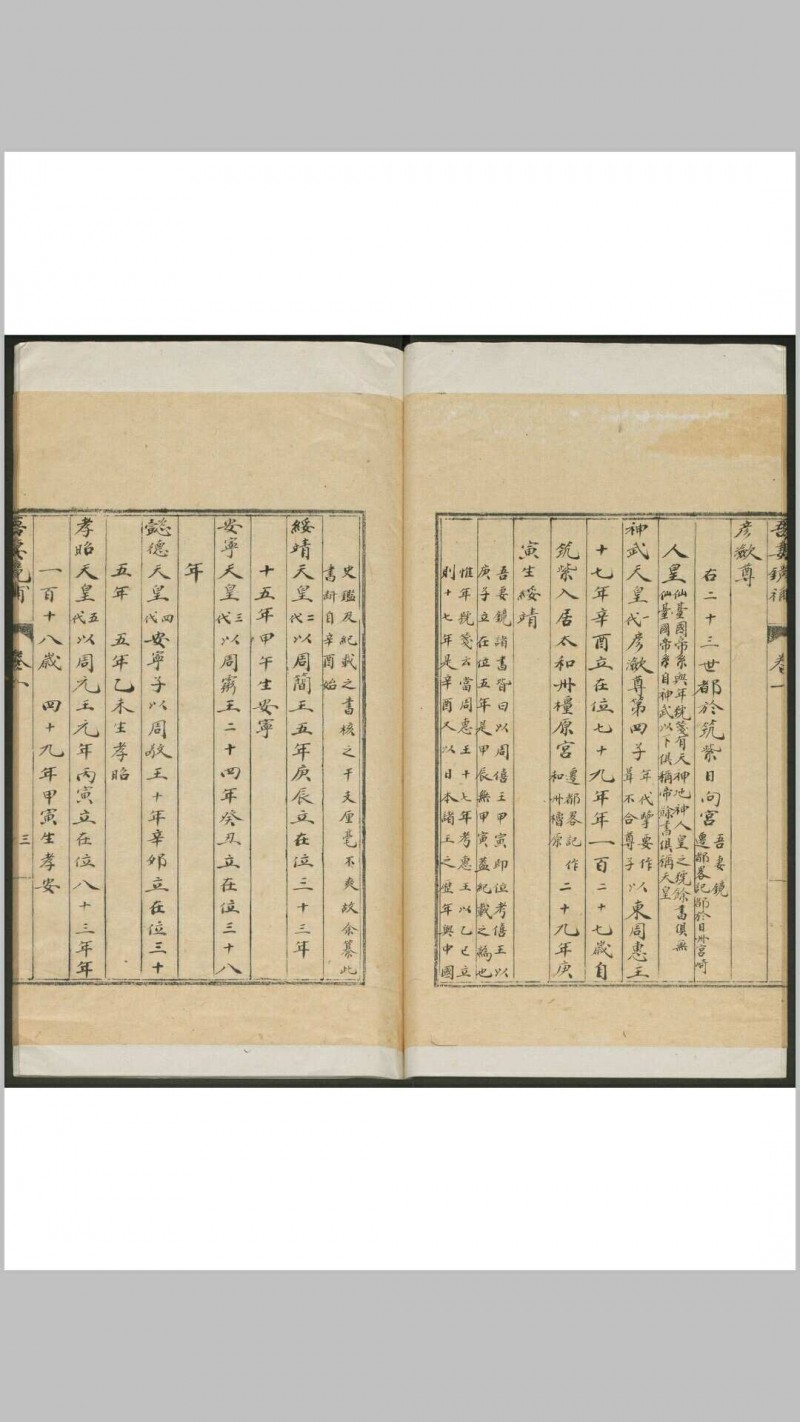 吾妻鏡補 卷一
彦瀲尊
右二十三世都於筑紫日向宮吾妻鏡遷都畧記都於日州宮崎
人皇仙臺國帝系與年號箋有天神地神人皇之統餘書俱無仙臺國帝序自神武以下俱稱帝餘書俱稱天皇
神武天皇一代彦瀲尊第四子年代擥要作葺不合尊子以東周惠王
十七年辛酉立在位七十九年年一百二十七歲自
筑紫入居太和州橿原宮遷都畧記作和州橿原二十九年庚
寅生綏靖
吾妻鏡諸書皆曰以周僖王甲寅即位考僖王以
庚子立在位五年是甲辰無甲寅蓋紀載之譌也
惟年號箋云當周惠王十七年考惠王以乙巳立
則十七年是辛酉又以日本諸王之歷年與中國
史鑑及紀載之書核之干支厘毫不爽故余纂此
書斷自辛酉始
綏靖天皇二代以周簡王五年庚辰立在位三十三年
十五年甲午生安寧
安寧天皇三代以周靈王二十四年癸丑立在位三十八
年
懿德天皇四代安寧子以周敬王十年辛卯立在位三十
五年 五年乙未生孝昭
孝昭天皇五代以周元王元年丙寅立在位八十三年年
一百十八歲 四十九年甲寅生孝安
吾妻鏡補 卷一 三